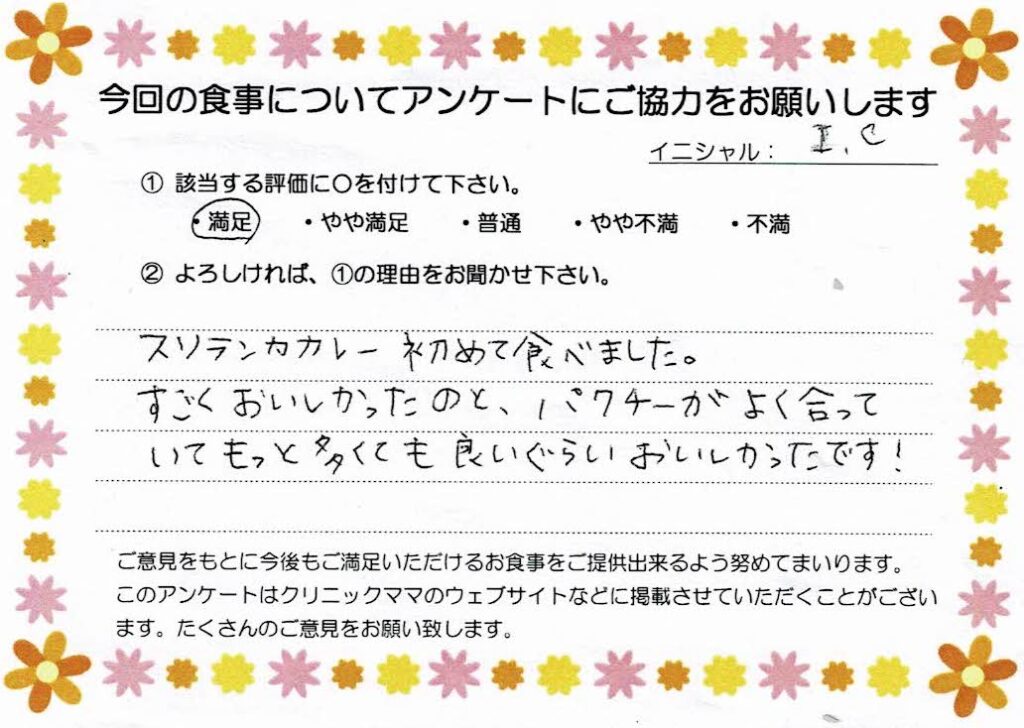 今回の食事についてアンケートにご協力をお願いします
イニシャル： I、C
① 該当する評価に〇を付けて下さい。
・満足 ・やや満足 ・普通 ・やや不満 ・不満
② よろしければ、①の理由をお聞かせ下さい。
スリランカカレー 初めて食べました。
すごくおいしかったのと、パクチーがよく合って
いてもっと多くても良いぐらいおいしかったです！
ご意見をもとに今後もご満足いただけるお食事をご提供出来るよう努めてまいります。
このアンケートはクリニックママのウェブサイトなどに掲載させていただくことがござい
ます。たくさんのご意見をお願い致します。